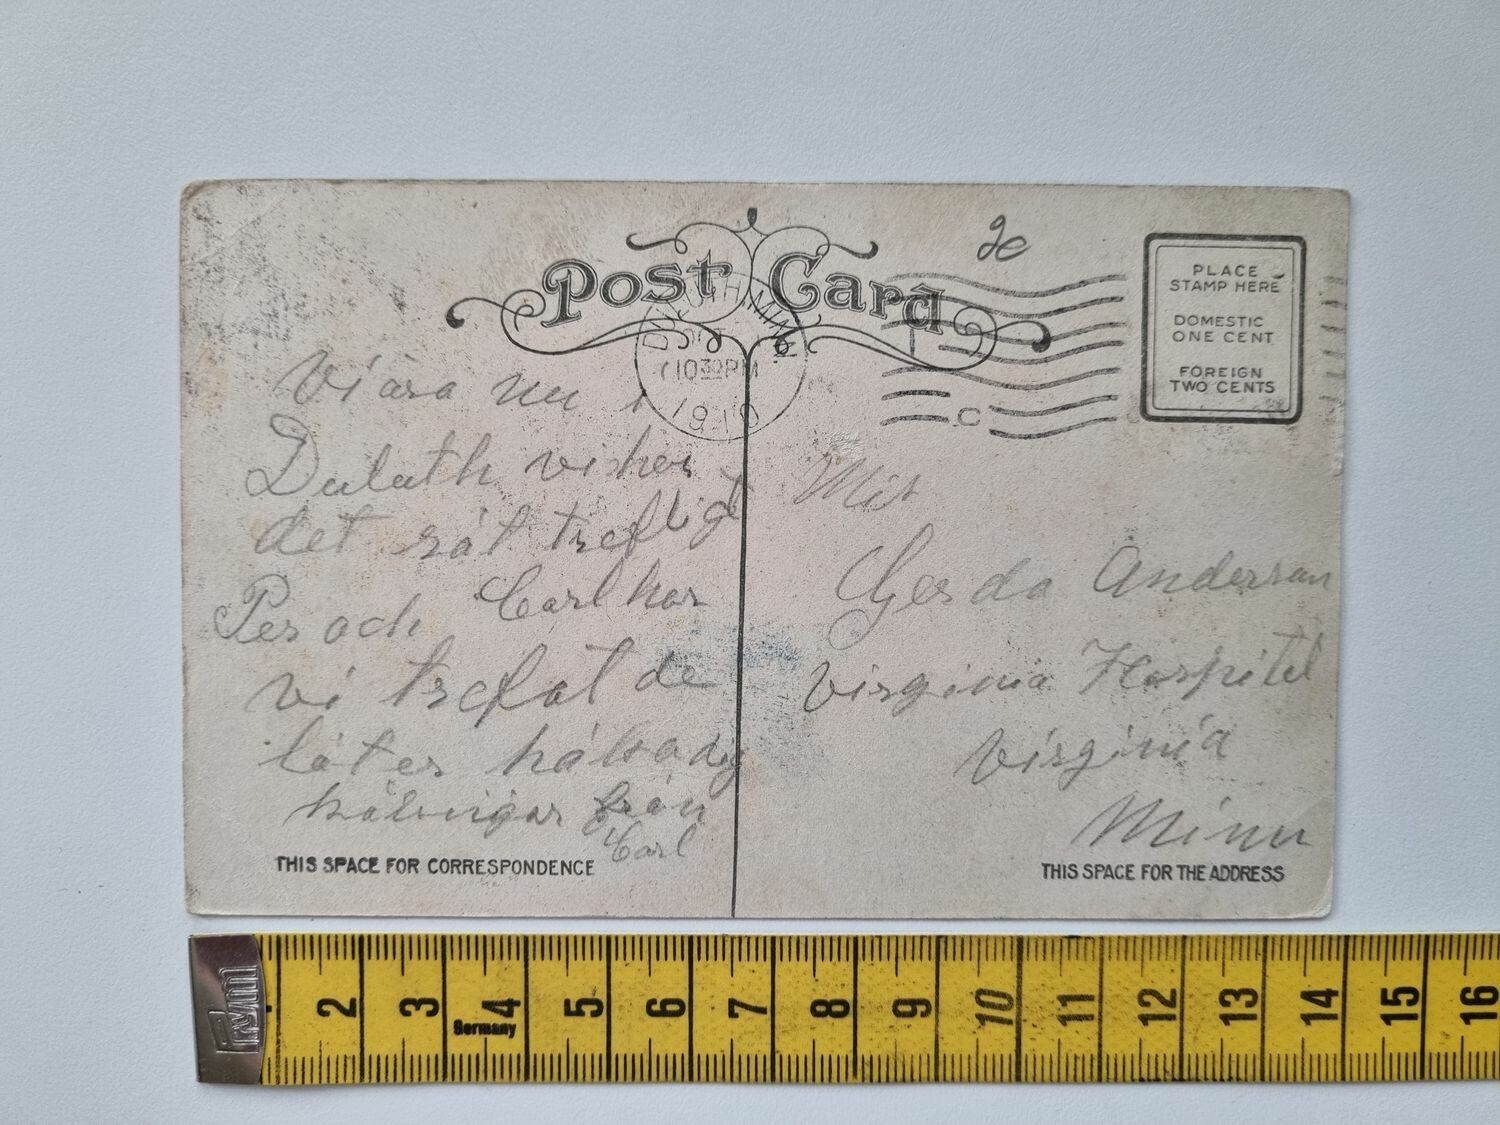 2c
Post Card
DULUTH, MINN.
10 30 PM
1910
C
PLACE
STAMP HERE
DOMESTIC
ONE CENT
FOREIGN
TWO CENTS
Vi ära nu i
Duluth
det så treflig
Per och Carl har
vi trefat de
låter hälsa dig
hälsnigar från
Carl
THIS SPACE FOR CORRESPONDENCE
Mis
Gerda Anderson
Virginia Hospitel
Virginia
Minn
THIS SPACE FOR THE ADDRESS
Prym
2 3 4 5 6 7 8 9 10 11 12 13 14 15 16
Germany